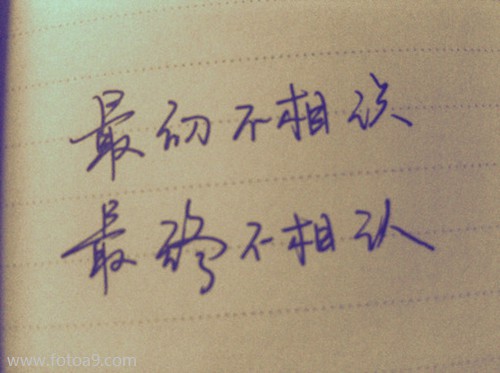 最初不相识
最终不相认
www.fotoa9.com